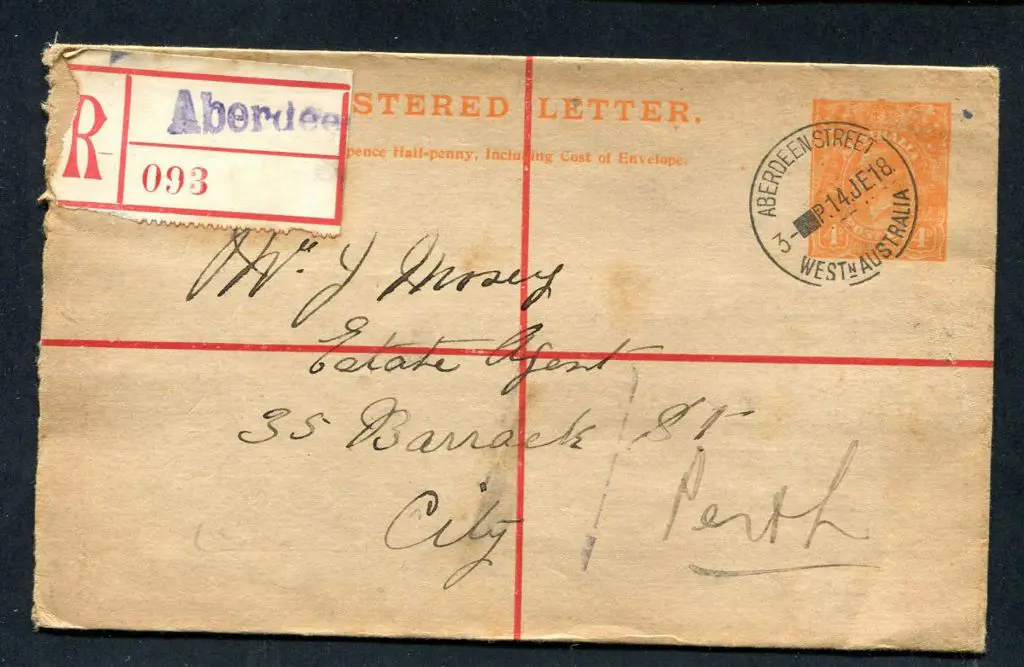 R
Aberdee
093
STERED LETTER.
pence Half-penny, Including Cost of Envelope.
ABERDEEN STREET
3- P.14JE18
WESTN AUSTRALIA
1D 1D
Mr J Mosey
Estate Agent
35 Barrack St
City
Perth